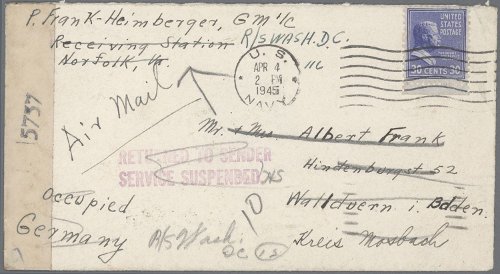 P. Frank-Heimberger, GM 1/C
Receiving Station R/S WASH. D.C.
Norfolk, Va
U.S.
APR 4
2 PM
1945
NAVY
UNITED STATES POSTAGE
30 CENTS 30
5757
Air Mail
Mr. + Mrs Albert Frank
Hindenburgst 52
Wallduern i. Baden.
Kreis Mosbach
RETURNED TO SENDER
SERVICE SUSPENDED
Occupied
Germany
R/S Wash.
DC 12